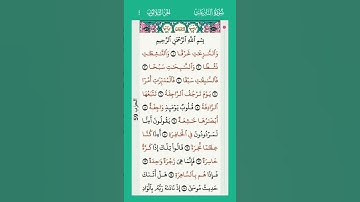 سُورَةُ النَّازِعَاتِ
الجزء الثلاثون
بِسْمِ ٱللَّهِ ٱلرَّحْمَٰنِ ٱلرَّحِيمِ
وَٱلنَّٰزِعَٰتِ غَرْقًا ١ وَٱلنَّٰشِطَٰتِ
نَشْطًا ٢ وَٱلسَّٰبِحَٰتِ سَبْحًا ٣
فَٱلسَّٰبِقَٰتِ سَبْقًا ٤ فَٱلْمُدَبِّرَٰتِ أَمْرًا
٥ يَوْمَ تَرْجُفُ ٱلرَّاجِفَةُ ٦ تَتْبَعُهَا
ٱلرَّادِفَةُ ٧ قُلُوبٌ يَوْمَئِذٍ وَاجِفَةٌ ٨
أَبْصَٰرُهَا خَٰشِعَةٌ ٩ يَقُولُونَ أَءِنَّا
لَمَرْدُودُونَ فِى ٱلْحَافِرَةِ ١٠ أَءِذَا كُنَّا
عِظَٰمًا نَّخِرَةً ١١ قَالُوا۟ تِلْكَ إِذًا كَرَّةٌ
خَاسِرَةٌ ١٢ فَإِنَّمَا هِىَ زَجْرَةٌ وَٰحِدَةٌ ١٣
فَإِذَا هُم بِٱلسَّاهِرَةِ ١٤ هَلْ أَتَىٰكَ
حَدِيثُ مُوسَىٰٓ ١٥ إِذْ نَادَىٰهُ رَبُّهُۥ بِٱلْوَادِ
الحزب 59